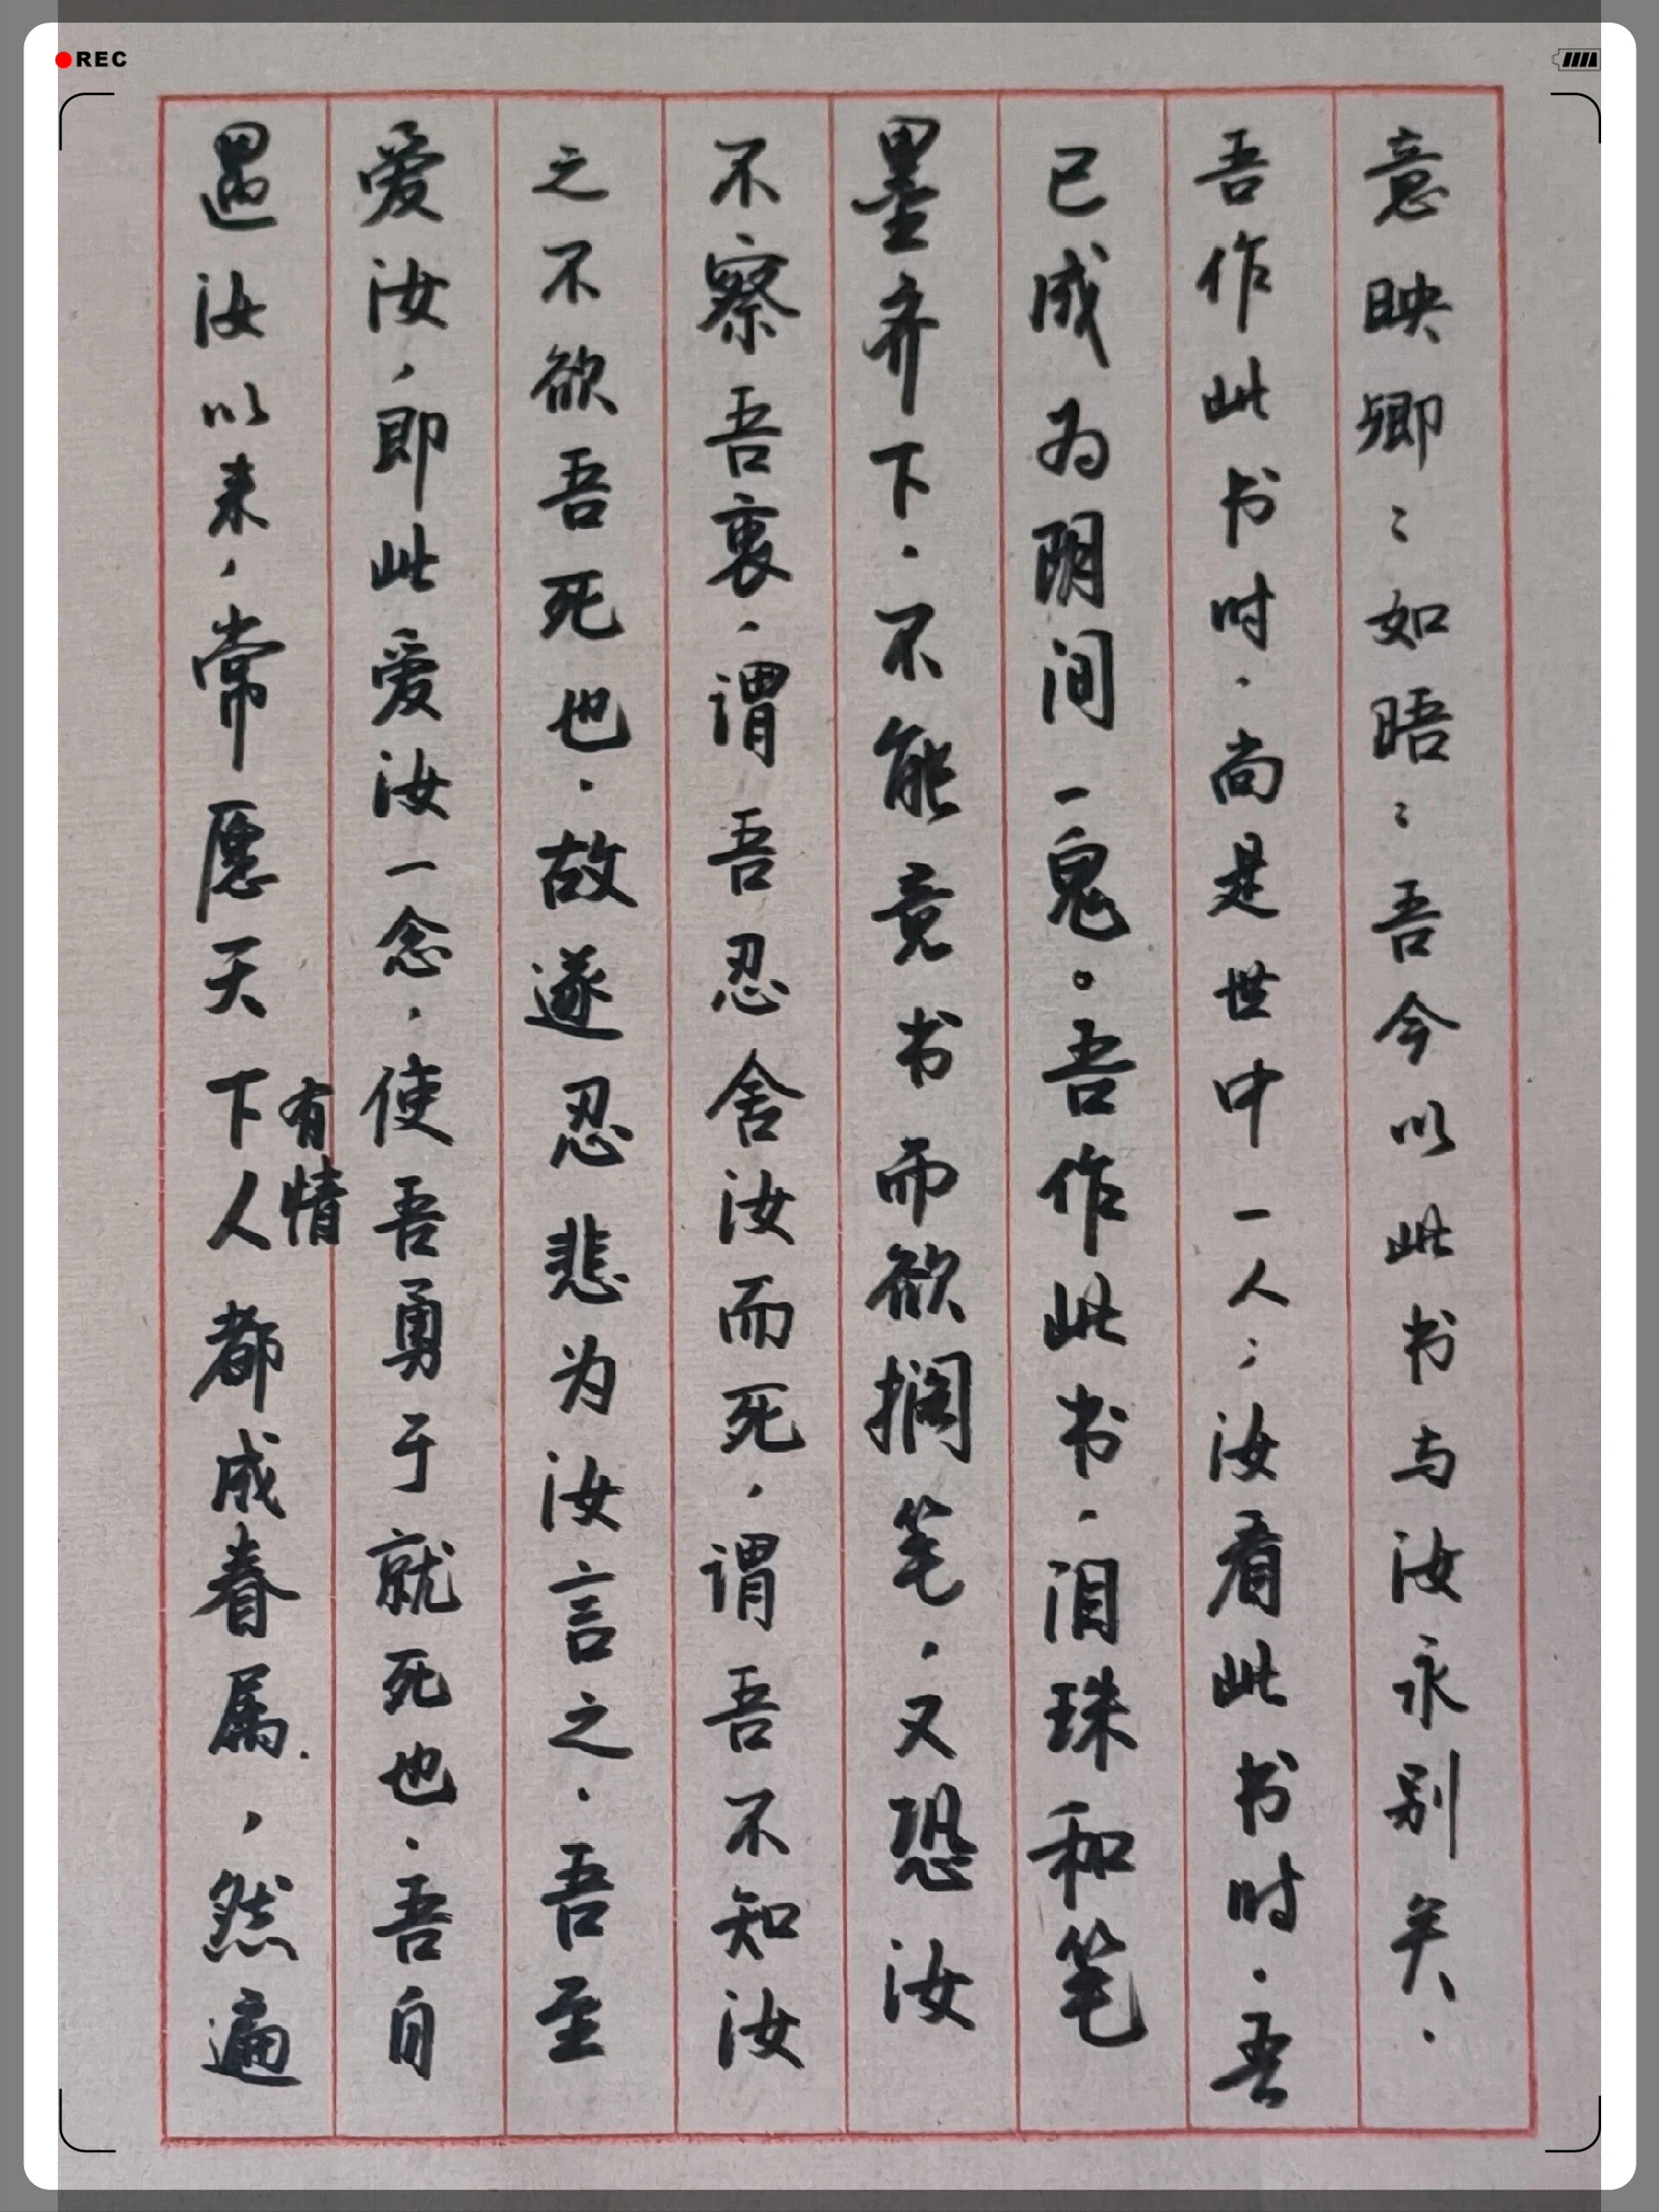 REC
意映卿：如晤：吾今以此书与汝永别矣．
吾作此书时．尚是世中一人；汝看此书时．吾
已成为阴间一鬼。吾作此书．泪珠和笔
墨齐下．不能竟书而欲搁笔．又恐汝
不察吾衷．谓吾忍舍汝而死，谓吾不知汝
之不欲吾死也．故遂忍悲为汝言之．吾至
爱汝，即此爱汝一念，使吾勇于就死也．吾自
遇汝以来，常愿天下有情人都成眷属．，然遍